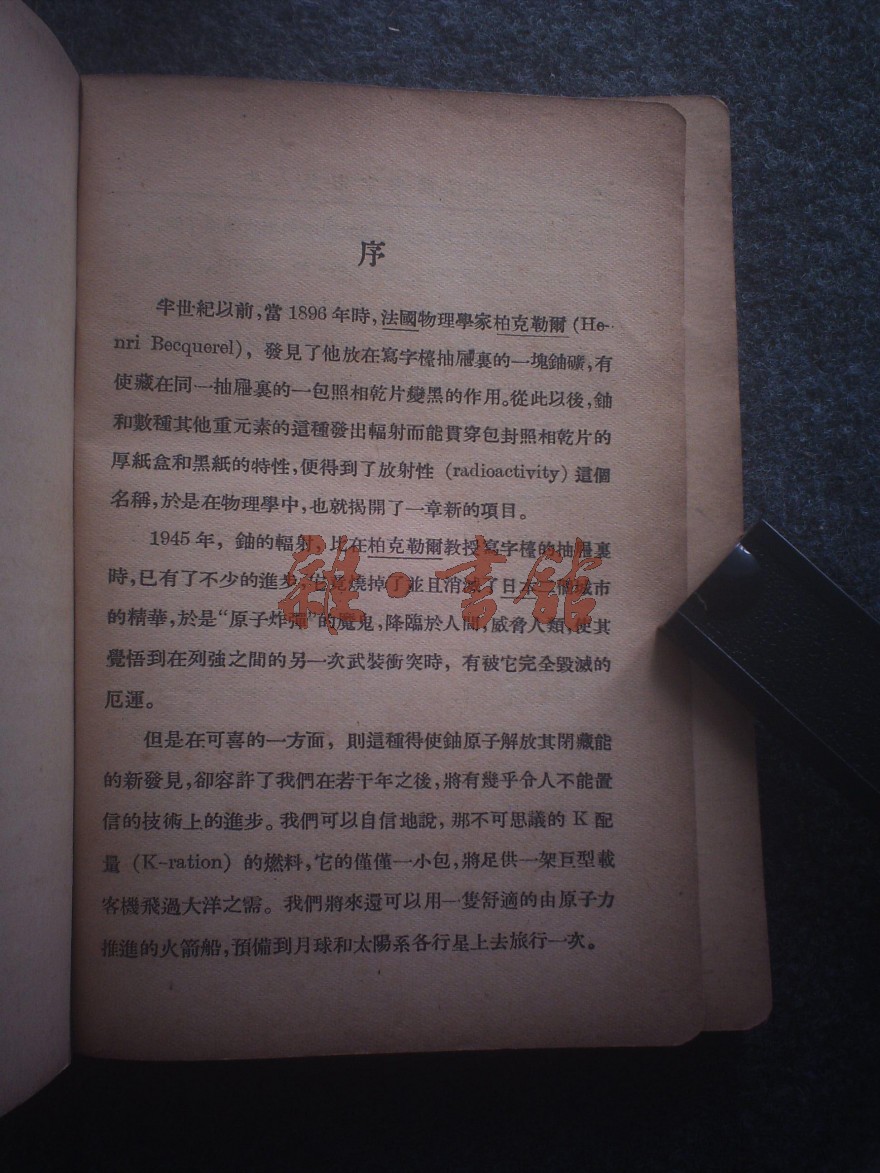 序
半世紀以前,當 1896 年時,法國物理學家柏克勒爾 (He-
nri Becquerel), 發見了他放在寫字檯抽屜裏的一塊鈾礦,有
使藏在同一抽屜裏的一包照相乾片變黑的作用。從此以後,鈾
和數種其他重元素的這種發出輻射而能貫穿包封照相乾片的
厚紙盒和黑紙的特性,便得到了放射性 (radioactivity) 這個
名稱,於是在物理學中,也就揭開了一章新的項目。
1945 年, 鈾的輻射, 比在柏克勒爾教授寫字檯的抽屜裏
時,已有了不少的進步,它竟燒掉了並且消滅了日本二個城市
的精華,於是“原子炸彈”的魔鬼,降臨於人間,威脅人類,使其
覺悟到在列強之間的另一次武裝衝突時, 有被它完全毀滅的
厄運。
但是在可喜的一方面, 則這種得使鈾原子解放其閉藏能
的新發見,卻容許了我們在若干年之後,將有幾乎令人不能置
信的技術上的進步。我們可以自信地說, 那不可思議的 K 配
量 (K-ration) 的燃料,它的僅僅一小包,將足供一架巨型載
客機飛過大洋之需。我們將來還可以用一隻舒適的由原子力
推進的火箭船,預備到月球和太陽系各行星上去旅行一次。
雜·書館